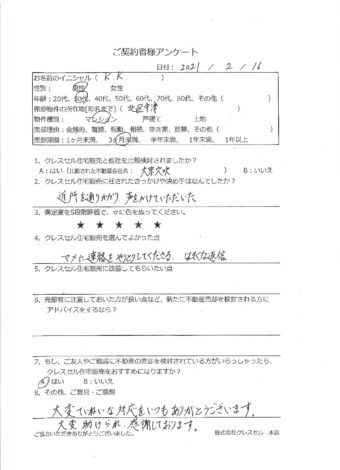 ご契約者様アンケート
日付: 2021 / 2 / 16
お名前のイニシャル ( K.K )
性別: 男性 女性
年齢: 20代、30代、40代、50代、60代、70代、80代、その他 ( )
売却物件の所在地[町名まで] ( 北区中津 )
物件種別: マンション 戸建て 土地
売却理由: 金銭的、離婚、転勤、相続、空き家、買替、その他 ( )
売却期間: 1ヶ月未満、 3ヶ月未満、 半年未満、 1年未満、 1年以上
1. クレスセル住宅販売と他社を比較検討されましたか?
A: はい (比較された不動産会社名: 大京穴吹 ) B: いいえ
2. クレスセル住宅販売に任されたきっかけや決め手はなんでしたか?
近所を通りかかり、声をかけていただいた
3. 満足度を5段階評価で、☆に色をぬってください。
★ ★ ★ ★ ★
4. クレスセル住宅販売を選んでよかった点
マメに連絡をやりとりしてくださる。はやくな返信
5. クレスセル住宅販売に改善してもらいたい点
6. 売却前に注意しておいた方が良い点など、新たに不動産売却を検討される方に
アドバイスをするなら?
7. もし、ご友人やご親戚に不動産の売却を検討されている方がいらっしゃったら、
クレスセル住宅販売をおすすめになりますか?
A はい B: いいえ
8. その他、ご意見・ご感想
大変ていねいな対応をいつもありがとうございます。
大変助けられ、感謝しております。
ご協力いただきありがとうございました。 株式会社クレスセル 本店